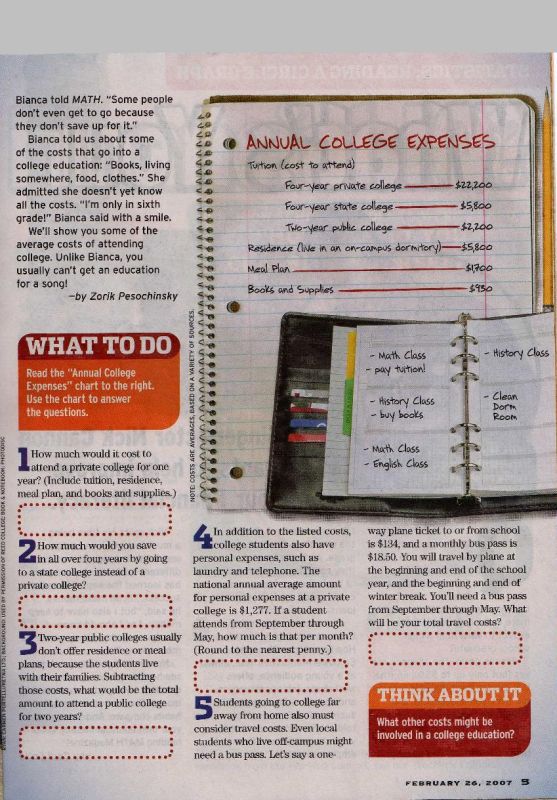 Bianca told MATH. "Some people
don't even get to go because
they don't save up for it."
Bianca told us about some
of the costs that go into a
college education: "Books, living
somewhere, food, clothes." She
admitted she doesn't yet know
all the costs. "I'm only in sixth
grade!" Bianca said with a smile.
We'll show you some of the
average costs of attending
college. Unlike Bianca, you
usually can't get an education
for a song!
—by Zorik Pesochinsky
ANNUAL COLLEGE EXPENSES
Tuition (cost to attend)
Four-year private college $22,200
Four-year state college $5,800
Two-year public college $2,200
Residence (live in an on-campus dormitory) $5,800
Meal Plan $1,700
Books and Supplies $930
NOTE: COSTS ARE AVERAGES, BASED ON A VARIETY OF SOURCES.
- Math Class
- pay tuition!
- History Class
- buy books
- Math Class
- English Class
- History Class
- Clean
Dorm
Room
WHAT TO DO
Read the "Annual College
Expenses" chart to the right.
Use the chart to answer
the questions.
1 How much would it cost to
attend a private college for one
year? (Include tuition, residence,
meal plan, and books and supplies.)
2 How much would you save
in all over four years by going
to a state college instead of a
private college?
3 Two-year public colleges usually
don't offer residence or meal
plans, because the students live
with their families. Subtracting
those costs, what would be the total
amount to attend a public college
for two years?
4 In addition to the listed costs,
college students also have
personal expenses, such as
laundry and telephone. The
national annual average amount
for personal expenses at a private
college is $1,277. If a student
attends from September through
May, how much is that per month?
(Round to the nearest penny.)
5 Students going to college far
away from home also must
consider travel costs. Even local
students who live off-campus might
need a bus pass. Let's say a one-
way plane ticket to or from school
is $134, and a monthly bus pass is
$18.50. You will travel by plane at
the beginning and end of the school
year, and the beginning and end of
winter break. You'll need a bus pass
from September through May. What
will be your total travel costs?
THINK ABOUT IT
What other costs might be
involved in a college education?
FEBRUARY 26, 2007 5